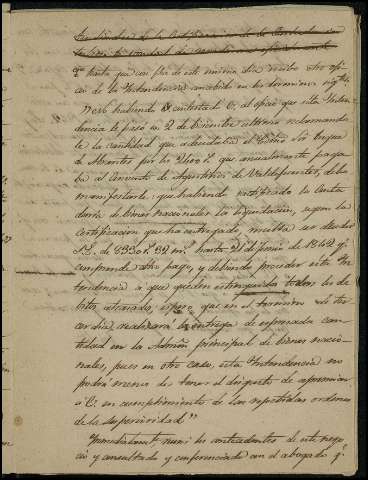 que hasta que con fha de este mismo dia recibe otro ofi-
cio de la Yntendencia concebido en los terminos sigtes
"No habiendo V. contestado al oficio que esta Yntendencia
le paso en 2 de Diciembre ultimo reclamando
la cantidad que adeudaba el Exmo Sor Duque
de Abrantes por los 2200 rs que anualmente paga-
ba al Convento de Agustinos de Valdefuentes, debo
manifestarle, que habiendo rectificado la Conta-
duria de bienes nacionales la liquidacion, segun la
certificacion que ha entregado, resulta ser deudor
S.E. de 2330 rs 32 ms hasta 21 de junio de 1842 qe
comprende otro pago, y debiendo proceder esta Yn-
tendencia a que queden estinguidos todos los de-
bitos atrasados, espero que en el termino de ter-
cer dia, realizará la entrega de espresada can-
tidad en la Admon principal de bienes nacio-
nales, pues en otro caso, esta Yntendencia no
podrá menos de tener el disgusto de apremiar
a V. en cumplimiento de las repetidas ordenes
de la superioridad"
Ynmediatamte reuni los antecedentes de este nego-
cio y consultado y conferenciado con el abogado qe